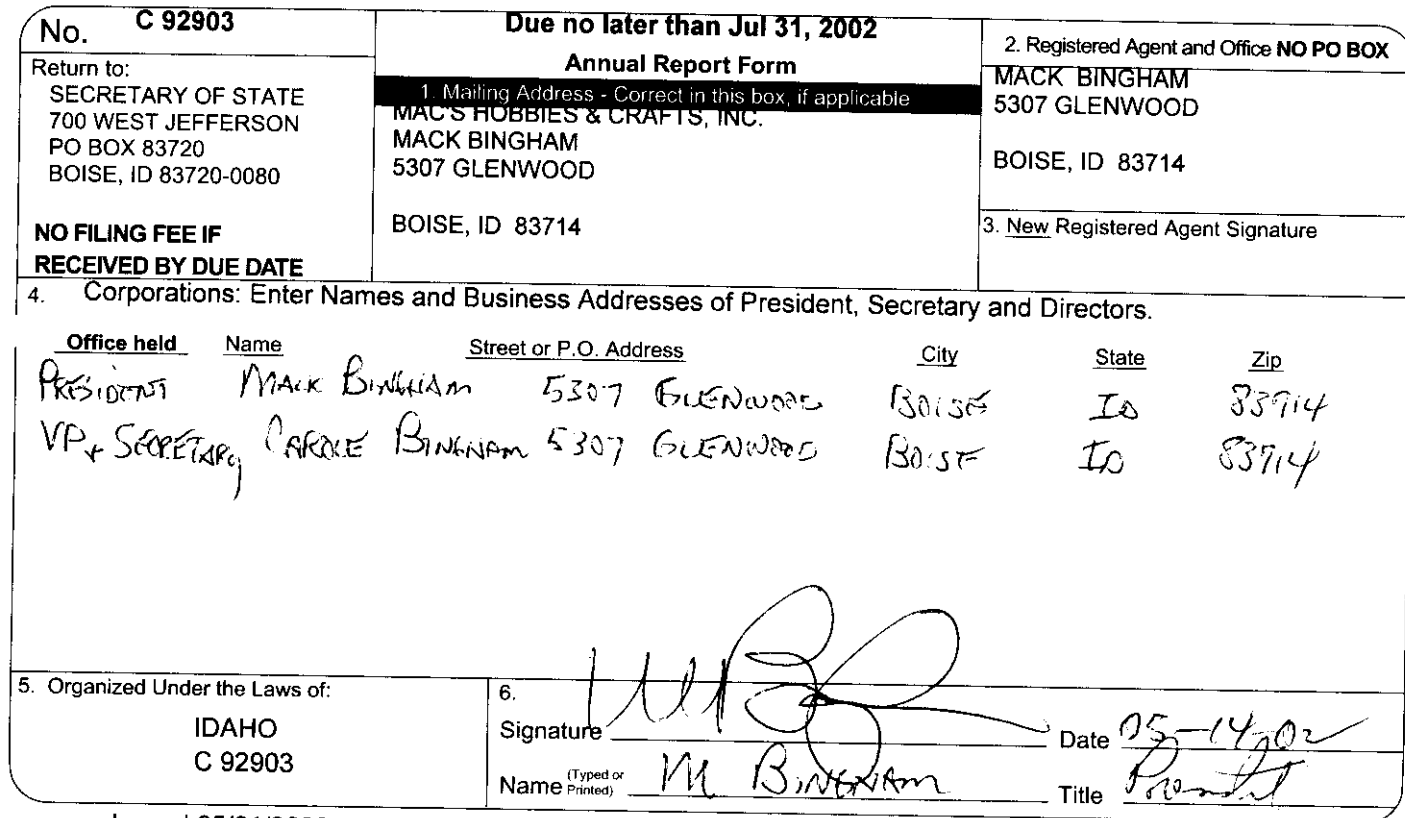 No. C 92903
Return to:
SECRETARY OF STATE
700 WEST JEFFERSON
PO BOX 83720
BOISE, ID 83720-0080
NO FILING FEE IF
RECEIVED BY DUE DATE
Due no later than Jul 31, 2002
Annual Report Form
1. Mailing Address - Correct in this box, if applicable
MAC'S HOBBIES & CRAFTS, INC.
MACK BINGHAM
5307 GLENWOOD
BOISE, ID 83714
2. Registered Agent and Office NO PO BOX
MACK BINGHAM
5307 GLENWOOD
BOISE, ID 83714
3. New Registered Agent Signature
4. Corporations: Enter Names and Business Addresses of President, Secretary and Directors.
Office held Name Street or P.O. Address City State Zip
PRESIDENT MACK BINGHAM 5307 GLENWOOD BOISE ID 83714
VP + SECRETARY CAROLE BINGHAM 5307 GLENWOOD BOISE ID 83714
5. Organized Under the Laws of:
IDAHO
C 92903
6.
Signature Date 05-14-02
Name (Typed or Printed) M BINGHAM Title President